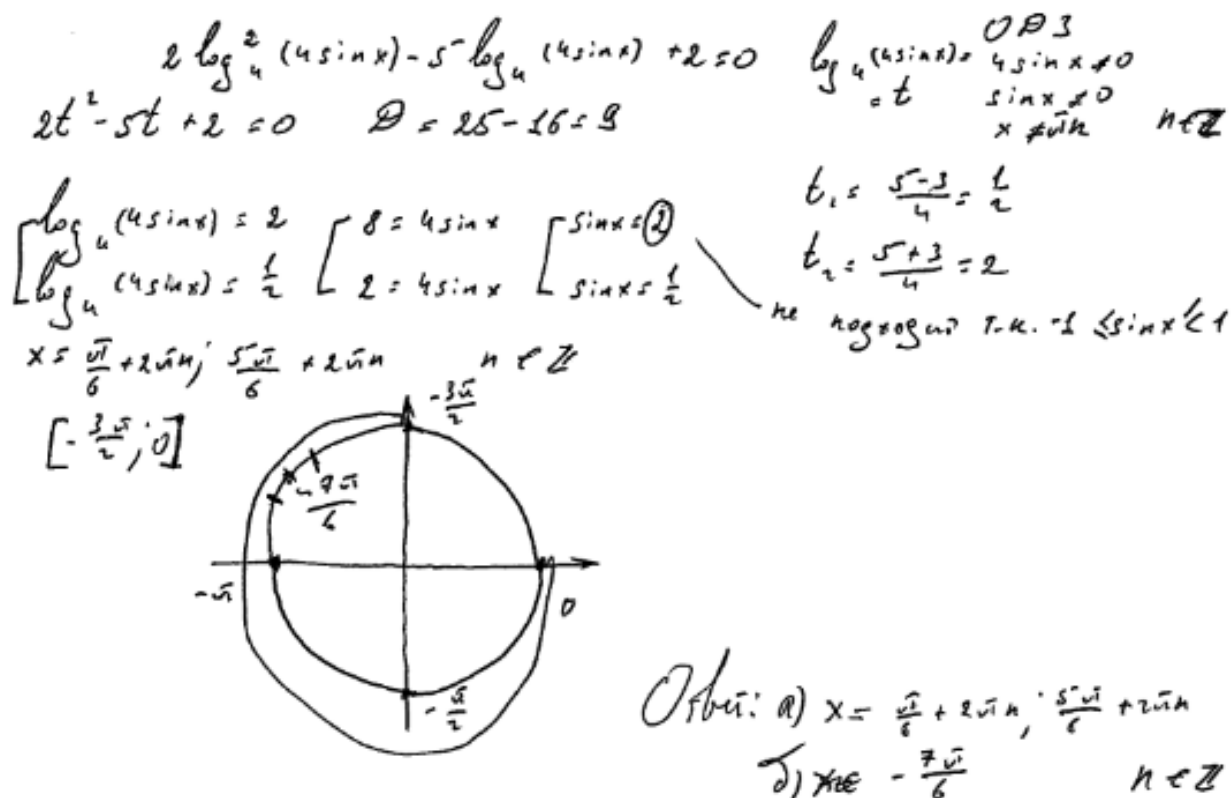 2 log₄² (4sinx) - 5 log₄ (4sinx) + 2 = 0
log₄ (4sinx) = t
ОДЗ
4sinx ≠ 0
sinx ≠ 0
x ≠ πn n ∈ ℤ
2t² - 5t + 2 = 0 D = 25 - 16 = 9
t₁ = (5-3)/4 = 1/2
t₂ = (5+3)/4 = 2
[ log₄ (4sinx) = 2 [ 8 = 4sinx [ sinx = 2
[ log₄ (4sinx) = 1/2 [ 2 = 4sinx [ sinx = 1/2
не подходит т.к. -1 ≤ sinx ≤ 1
x = π/6 + 2πn; 5π/6 + 2πn n ∈ ℤ
[-3π/2; 0]
-3π/2
-7π/6
-π
0
-π/2
Ответ: а) x = π/6 + 2πn; 5π/6 + 2πn
б) -7π/6 n ∈ ℤ